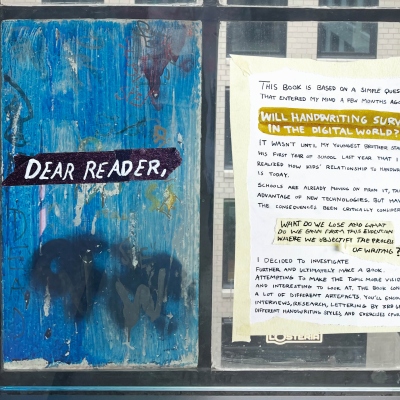 DEAR READER,
THIS BOOK IS BASED ON A SIMPLE QUES
THAT ENTERED MY MIND A FEW MONTHS AGO
WILL HANDWRITING SURV
IN THE DIGITAL WORLD?
IT WASN'T UNTIL MY YOUNGEST BROTHER STAR
HIS FIRST YEAR OF SCHOOL LAST YEAR THAT I
REALIZED HOW KIDS' RELATIONSHIP TO HANDWR
IS TODAY.
SCHOOLS ARE ALREADY MOVING ON FROM IT, TA
ADVANTAGE OF NEW TECHNOLOGIES. BUT HAV
THE CONSEQUENCES BEEN CRITICALLY CONSIDE
WHAT DO WE LOSE AND WHAT
DO WE GAIN FROM THIS EVOLUTION
WHERE WE OBJECTIFY THE PROCESS
OF WRITING?
I DECIDED TO INVESTIGATE
FURTHER AND ULTIMATELY MAKE A BOOK.
ATTEMPTING TO MAKE THE TOPIC MORE VISIB
AND INTERESTING TO LOOK AT. THE BOOK CON
A LOT OF DIFFERENT ARTEFACTS. YOU'LL ENCOU
INTERVIEWS, RESEARCH, LETTERING BY
DIFFERENT HANDWRITING STYLES, AND EXERCISES
L'OSTERIA